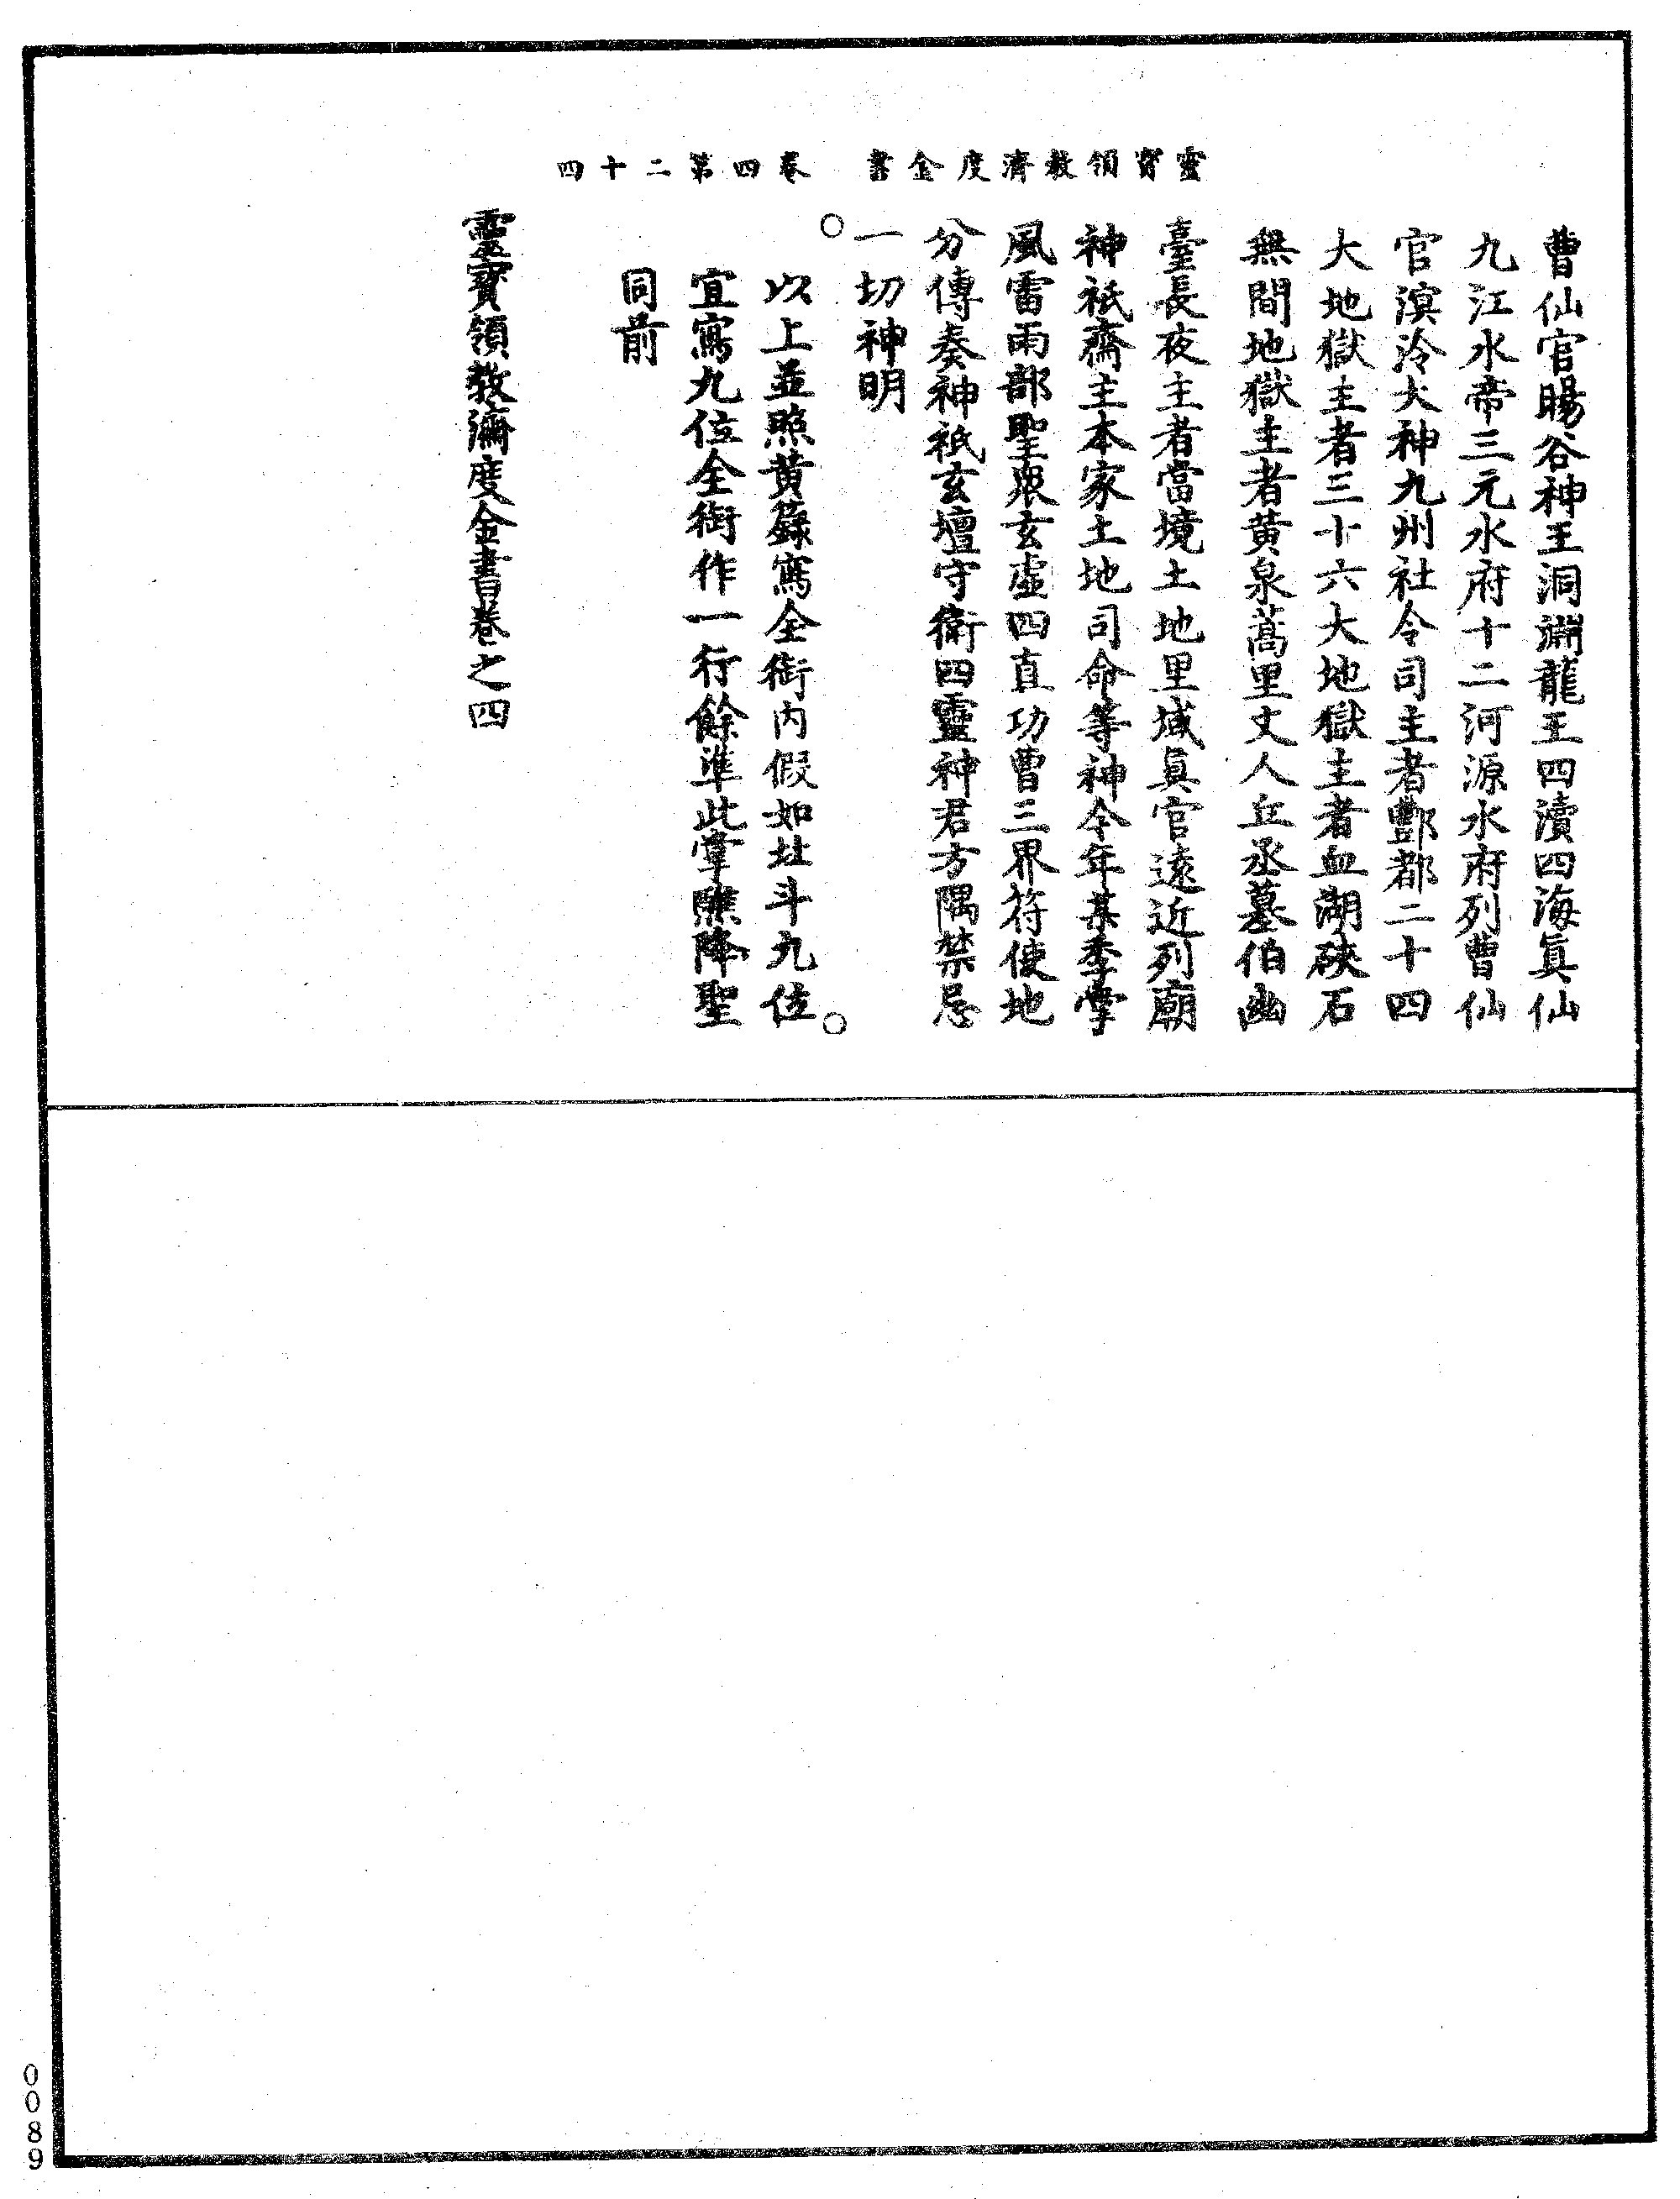 靈寶領教濟度金書　卷四第二十四
曹仙官暘谷神王洞淵龍王四瀆四海眞仙
九江水帝三元水府十二河源水府列曹仙
官溟泠大神九州社令司主者酆都二十四
大地獄主者三十六大地獄主者血湖硤石
無間地獄主者黄泉蒿里丈人丘丞墓伯幽
臺長夜主者當境土地里域眞官遠近列廟
神祇齋主本家土地司命等神今年某季掌
風雷雨部聖衆玄虛四直功曹三界符使地
分傳奏神祇玄壇守衛四靈神君方隅禁忌
一切神明
○以上並照黄籙寫全銜内假如北斗九位○
宜寫九位全銜作一行餘準此掌醮降聖
同前
靈寶領教濟度金書卷之四
0089